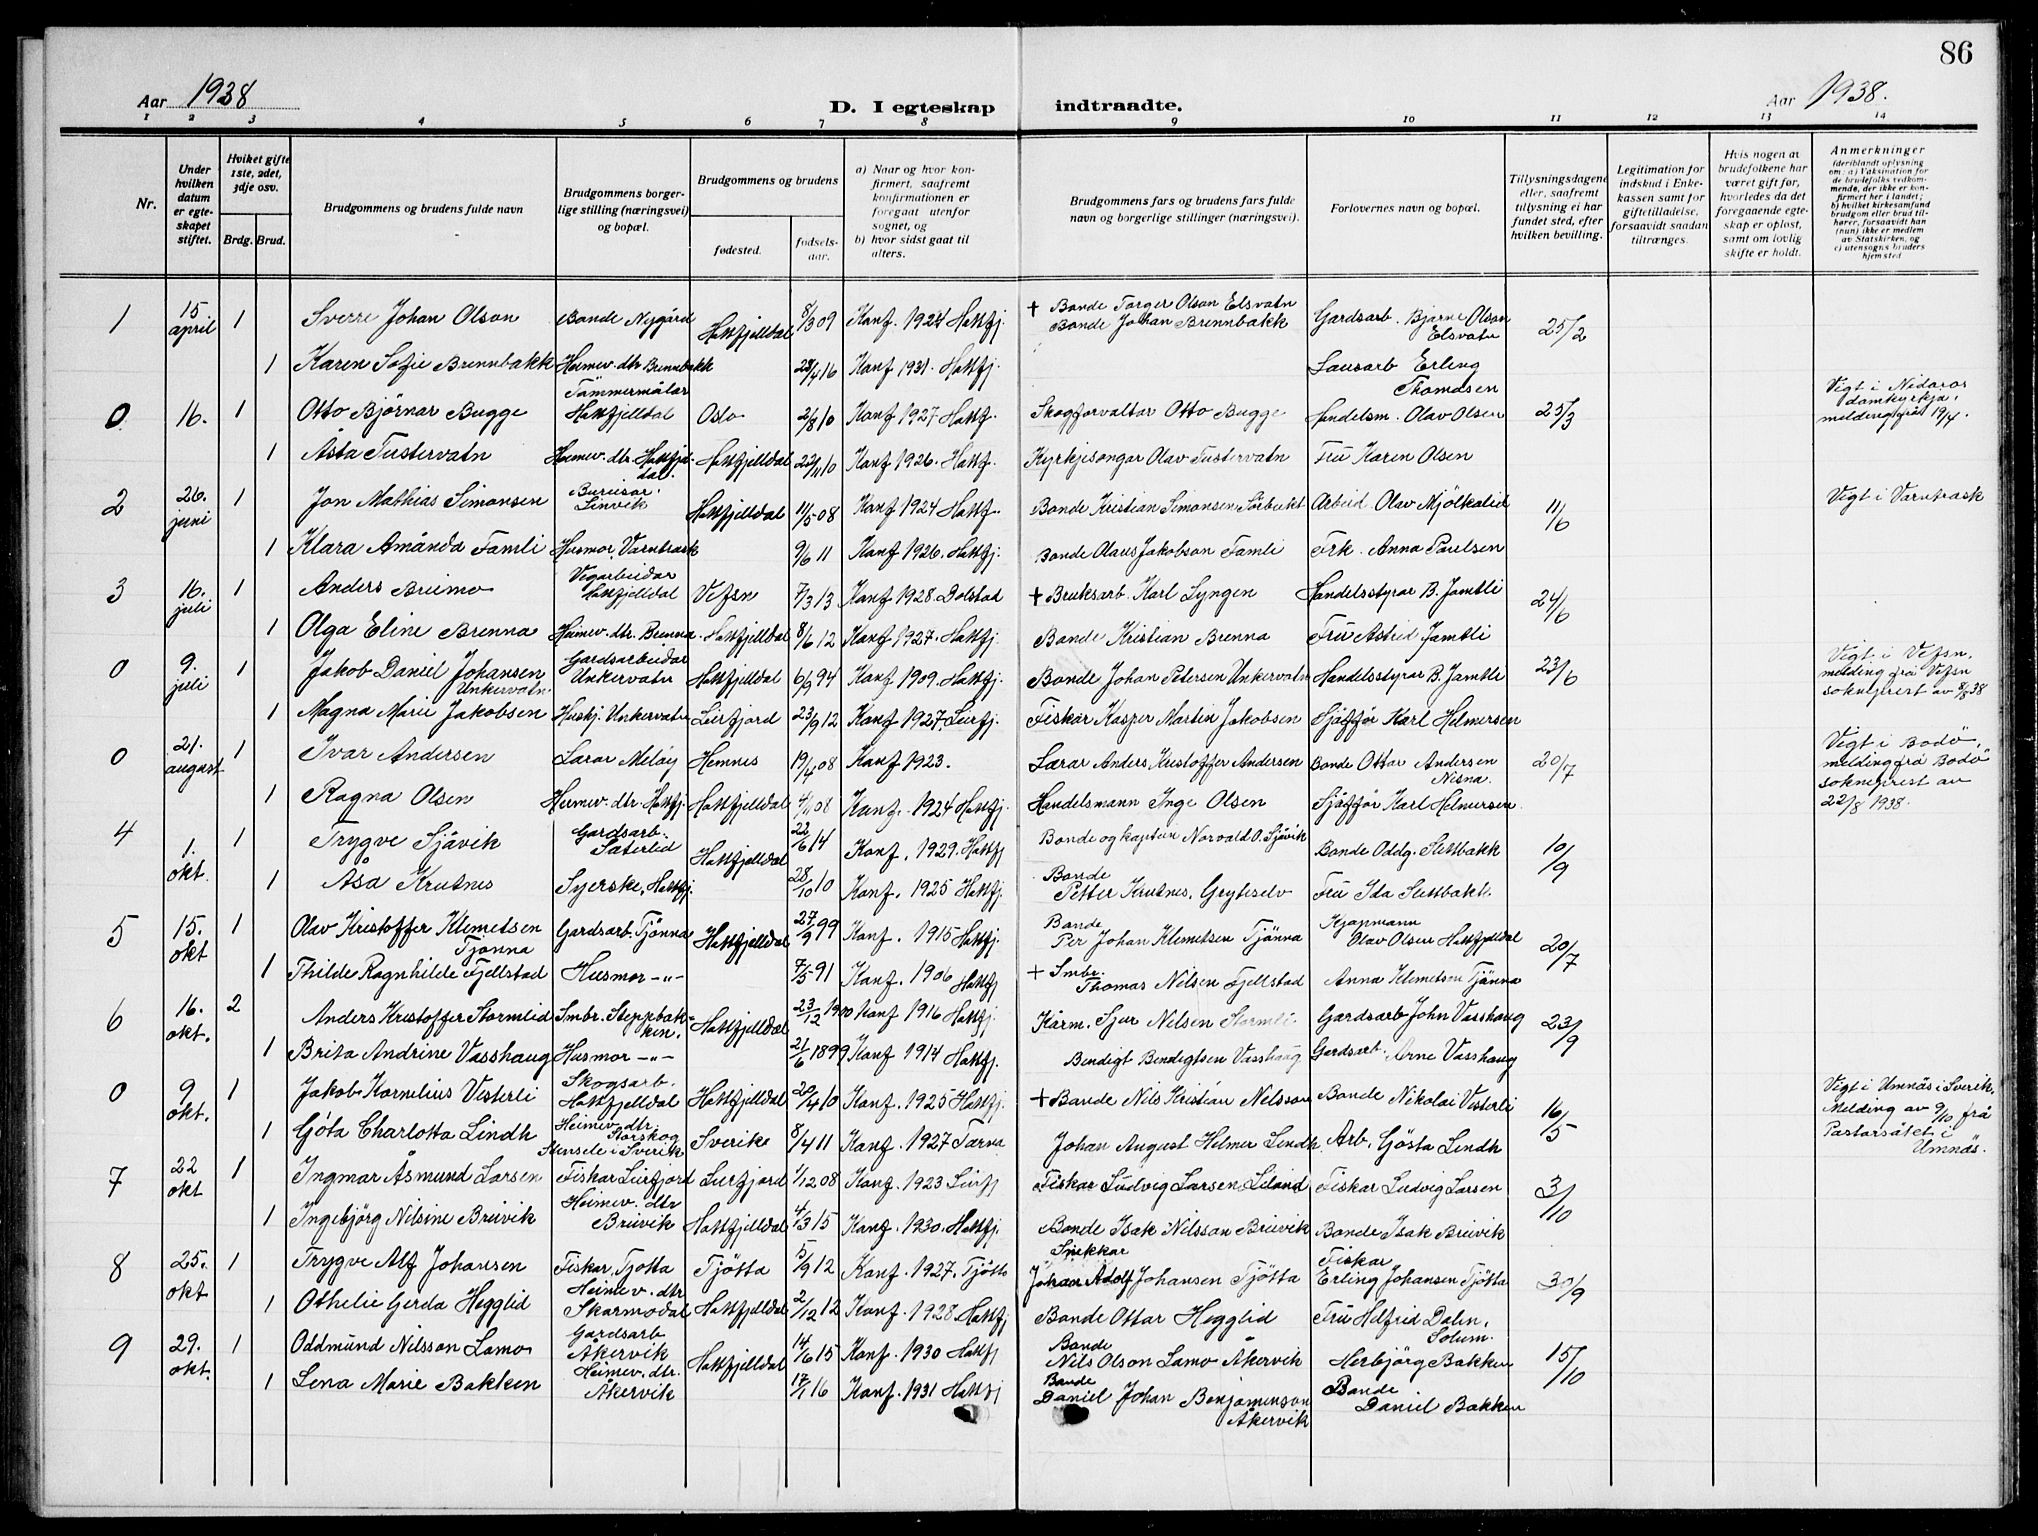 86
Aar 1938
D. I egteskap indtraadte.
Aar 1938.
1 2 3 4 5 6 7 8 9 10 11 12 13 14
Nr.
Under hvilken datum er egte-skapet stiftet.
Hviket gifte 1ste, 2det, 3dje osv.
Brdg. Brud.
Brudgommens og brudens fulde navn
Brudgommens borger-lige stilling (næringsvei) og bopæl.
Brudgommens og brudens
fødested.
fødsels-aar.
a) Naar og hvor kon-firmert, saafremt konfirmationen er foregaat utenfor sognet, og
b) hvor sidst gaat til alters.
Brudgommens fars og brudens fars fulde navn og borgerlige stillinger (næringsvei).
Forlovernes navn og bopæl.
Tillysningsdagene eller, saafremt tillysning ei har fundet sted, efter hvilken bevilling.
Legitimation for indskud i Enke-kassen samt for giftetilladelse, forsaavidt saadan tiltrænges.
Hvis nogen av brudefolkene har været gift før, hvorledes da det foregaaende egte-skap er opløst, samt om lovlig skifte er holdt.
Anmerkninger (deriblandt oplysning om: a) Vaksination for de brudefolks vedkom-mende, der ikke er kon-firmert her i landet; b) hvilket kirkesamfund brudgom eller brud til-hører, forsaavidt han (hun) ikke er medlem av Statskirken, og c) utensogns bruders hjemsted
1 15 april 1 Sverre Johan Olson Bonde Nygård Hattfjelldal 8/3 09 Konf. 1924 Hattfj. + Bonde Torger Olson Elsvatn Gardsarb. Bjarne Olson Elsvatn 25/2
1 Karen Sofie Brennbakk Heimev. dtr Brennbakk 28/4 16 Konf 1931. Hattfj. Bonde Johan Brennbakk Lausarb Erling Thomasen
0 16. 1 Otto Bjørnar Bugge Tømmermålar Hattfjelldal Oslo 2/8 10 Konf 1927 Hattf. Skogforvaltar Otto Bugge Handelsm. Olav Olsen 25/3 Vigt i Nidaros domkyrkja, melding frå 19/4.
1 Åsta Tustervatn Heimev. dtr. Hattfjeldal. Hattfjelldal 22/11 10 Konf 1926. Hattf. Kyrkjesongar Olav Tustervatn Fru Karen Olsen
2 26. juni 1 Jon Mathias Simonsen Bureisar. Linvik Hattfjelldal 11/5 08 Konf 1924 Hattf. Bonde Kristian Simonsen Sörbukt Arbeid. Olav Mjölkalid 11/6 Vigt i Varntresk
1 Klara Amånda Famli Husmor Varntresk 9/6 11 Konf 1926. Hattfj. Bonde Olaus Jakobson Famli Frk. Anna Paulsen
3 16. juli 1 Anders Breimo Vegarbeidar Hattfjelldal Vefsn 7/3 13 Konf 1928. Dolstad + Bruksarb. Karl Lyngen Handelsstyrar B. Jamtli 24/6
1 Olga Eline Brenna Heimev. dtr. Brenna. Hattfjelldal 8/6 12 Konf 1927. Hattfj. Bonde Kristian Brenna Fru Astrid Jamtli
0 9. juli 1 Jakob Daniel Johansen Unkervatn Gardsarbeidar Unkervatn Hattfjelldal 6/9 94 Konf 1909. Hattfj. Bonde Johan Petersen Unkervatn Handelsstyrar B. Jamtli 23/6 Vigt i Vefsn, melding frå Vefsn sokneprest av 8/8 38
1 Magna Marie Jakobsen Huskj. Unkervatn Leirfjord 23/9 12 Konf 1927. Leirfj. Fiskar Kasper Martin Jakobsen Sjåffør Karl Helmersen
0 21. august 1 Ivar Andersen Lærar Meløy Hemnes 19/4 08 Konf 1923. Lærar Anders Kristoffer Andersen Bonde Ottar Andersen Nesna. 20/7 Vigt i Bodö, melding frå Bodö sokneprest av 22/8 1938.
1 Ragna Olsen Heimev. dtr. Hattfj. Hattfjelldal 4/11 08 Konf. 1924 Hattfj. Handelsmann Inge Olsen Sjåffør Karl Helmersen.
4 1. okt. 1 Trygve Sjåvik Gardsarb. Sæterlid Hattfjelldal 22/6 14 Konf. 1929. Hattfj Bonde og kaptein Norvald O. Sjåvik Bonde Oddg. Slettbakk 10/9
1 Åsa Krutnes Syerske, Hattfj. 28/10 10 Konf. 1925 Hattfj. Bonde Petter Krutnes, Gryteselv Fru Ida Slettbakk.
5 15. okt 1 Olav Kristoffer Klemetsen Tjönna Gardsarb. Tjönna Hattfjelldal 27/9 99 Konf. 1915 Hattfj. Bonde Per Johan Klemetsen Tjönna Kjøpmann Olav Olsen Hattfjelldal 20/7
1 Thilde Ragnhilde Fjellstad Husmor -"- 7/5 91 Konf. 1906 Hattfj + Smbr. Thomas Nilsen Fjellstad Anna Klemetsen Tjönna
6 16. okt. 2 Anders Kristoffer Stormlid Smbr. Steppbakken. Hattfjelldal 23/12 1900 Konf 1916 Hattfj. Kårm. Sjur Nilsen Stormli Gardsarb John Vasshaug 23/9
1 Brita Andrine Vasshaug Husmor -"- 21/6 1899 Konf. 1914 Hattfj. Bendigt Bendigtsen Vasshaug Gardsarb. Arne Vasshaug
0 9 okt. 1 Jakob Kornelius Vesterli Skogsarb. Hattfjelldal Hattfjelldal 20/4 10 Konf. 1925 Hattfj. + Bonde Nils Kristian Nilsson Bonde Nikolai Vesterli 16/5 Vigt i Umnäs i Sverik, Melding av 9/10 frå Pastorsåtet i Umnäs.
1 Göta Charlotta Lindh Heimev. dtr. Storskog Stensele i Sverik Sverike 8/4 11 Konf. 1927 Tærna Johan August Helmer Lindh Arb. Gösta Lindh
7 22 okt 1 Ingmar Åsmund Larsen Fiskar Leirfjord Leirfjord 1/12 08 Konf. 1923 Leirfj Fiskar Ludvig Larsen Leland Fiskar Ludvig Larsen 3/10
1 Ingebjörg Nilsine Breivik Heimev. dtr Breivik Hattfjelldal 4/3 15 Konf. 1930. Hattfj. Bonde Isak Nilsson Breivik Bonde Isak Breivik
8 25. okt 1 Trygve Alf Johansen Fiskar, Tjøtta Tjøtta 5/9 12 Konf. 1927. Tjøtta Snekkar Johan Adolf Johansen Tjøtta Fiskar Erling Johansen Tjøtta 30/9
1 Othelie Gerda Hegglid Heimev. dtr Skarmodal Hattfjelldal 2/12 12 Konf. 1928 Hattfj Bonde Ottar Hegglid Fru Helfrid Dalen, Solum.
9 29. okt. 1 Oddmund Nilsson Lamo Gardsarb Åkervik Hattfjelldal 14/6 15 Konf. 1930 Hattfj Bonde Nils Olson Lamo Åkervik Herbjörg Bakken 15/10
1 Lena Marie Bakken Heimev. dtr. Åkervik 17/1 16 Konf. 1931 Hattfj Bonde Daniel Johan Benjaminson Åkervik Bonde Daniel Bakken